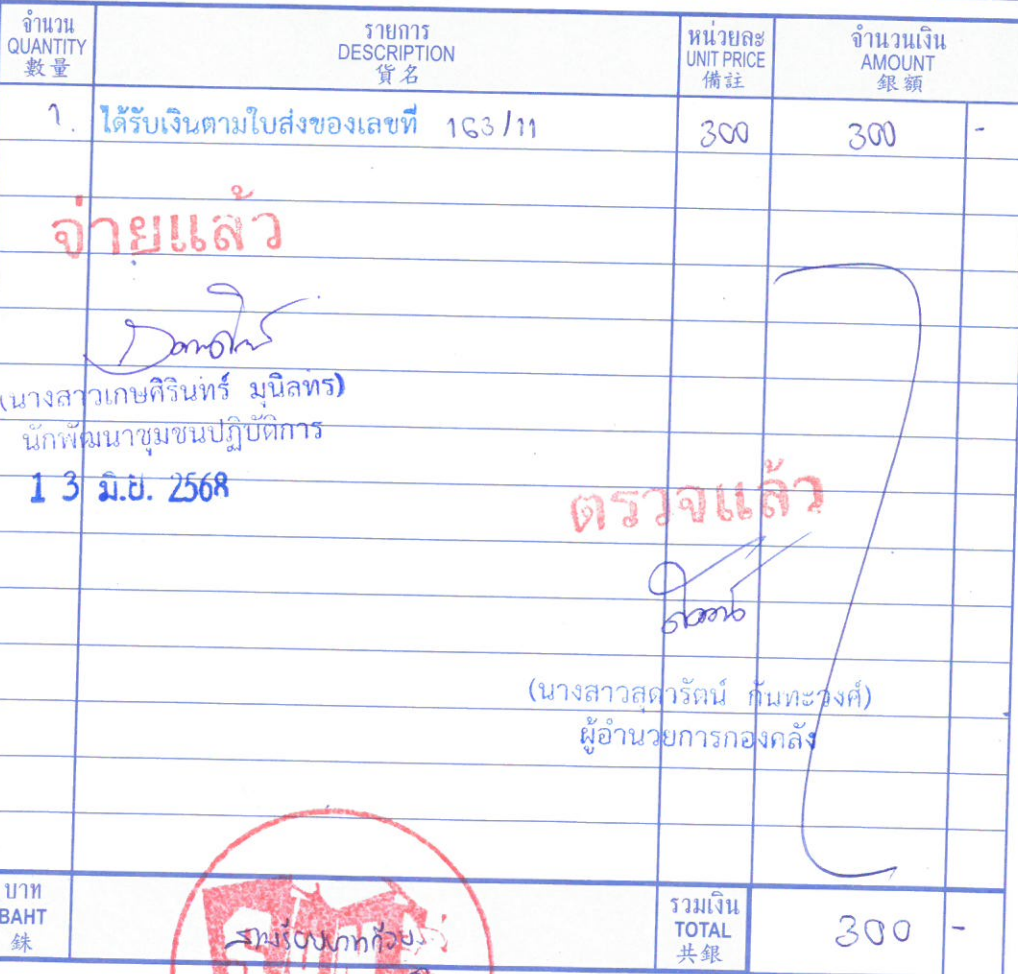 จำนวน
QUANTITY
數量
รายการ
DESCRIPTION
貨名
หน่วยละ
UNIT PRICE
備註
จำนวนเงิน
AMOUNT
銀額
1. ได้รับเงินตามใบส่งของเลขที่ 163/11 300 300 -
จ่ายแล้ว
(นางสาวเกษศิรินทร์ มุนิลทร)
นักพัฒนาชุมชนปฏิบัติการ
13 มิ.ย. 2568
ตรวจแล้ว
(นางสาวสุดารัตน์ กันทะวงศ์)
ผู้อำนวยการกองคลัง
บาท
BAHT
銖
สามร้อยบาทถ้วน
รวมเงิน
TOTAL
共銀
300 -